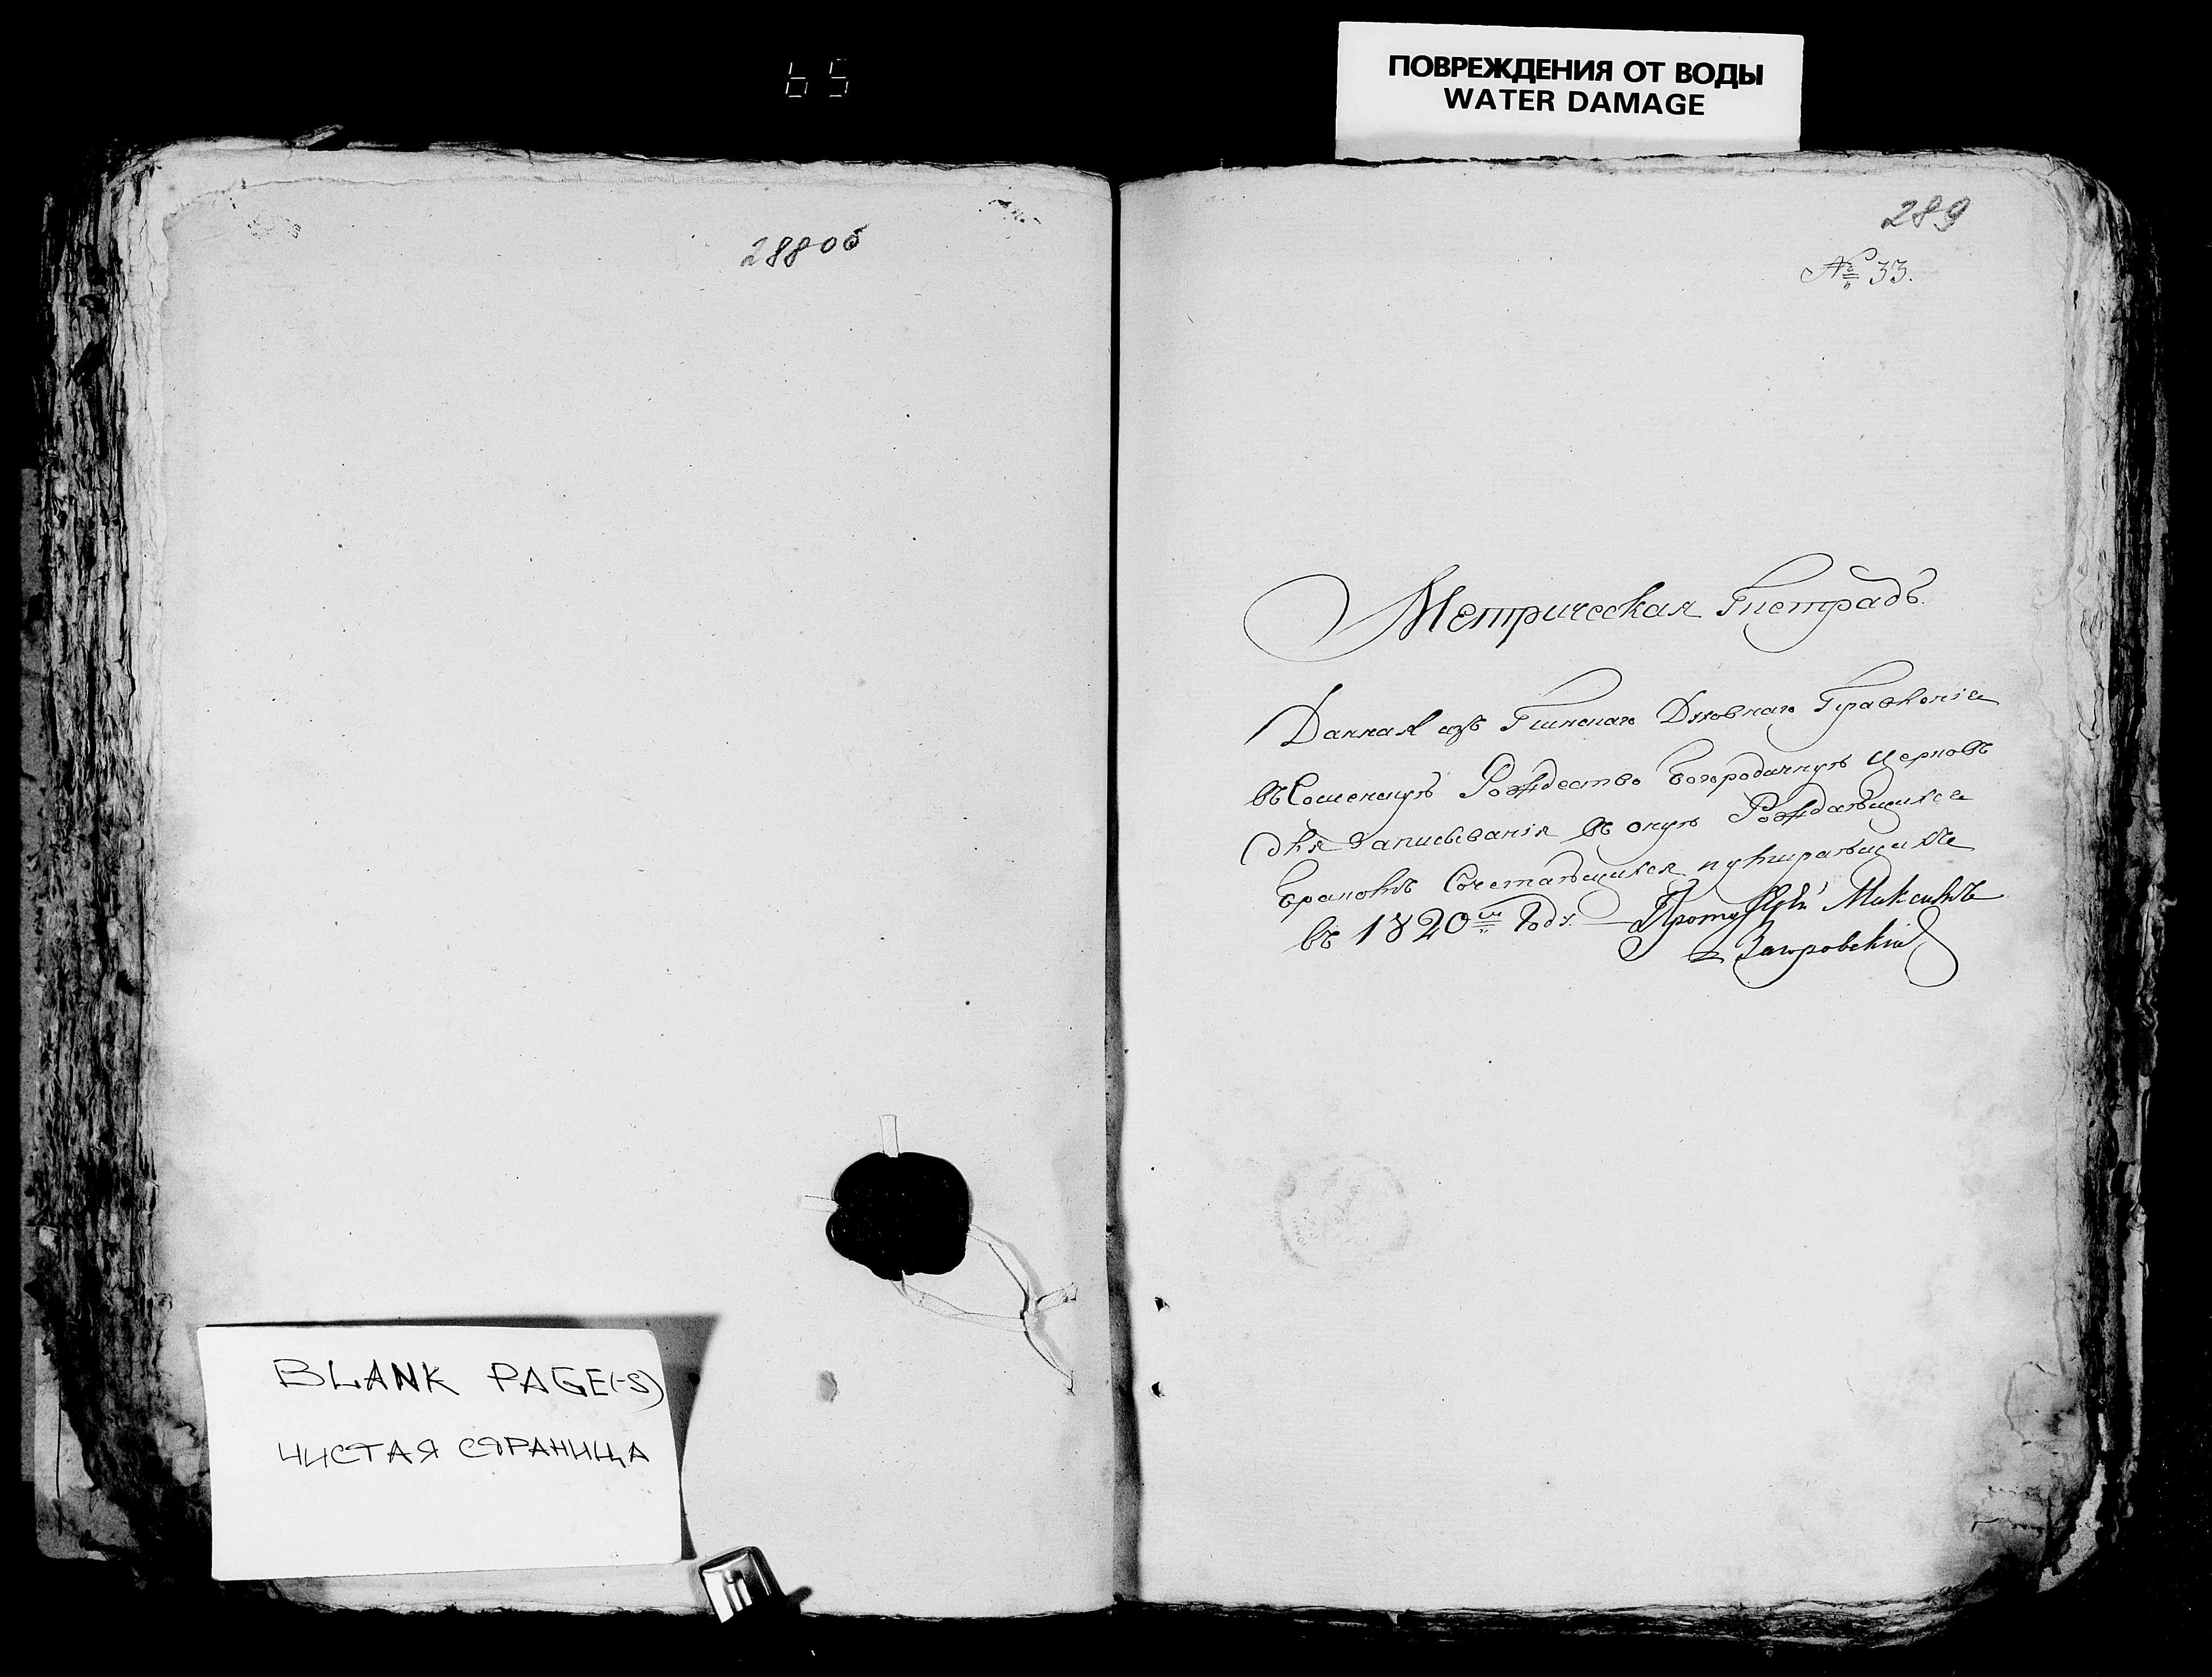 65
ПОВРЕЖДЕНИЯ ОТ ВОДЫ
WATER DAMAGE
288об
289
№ 33.
Метрическая Тетрадь.
Данная изъ Пинскаго Духовнаго Правленiя
въ Сошенскую Рождество Богородичную церковь
для записыванiя въ оную Рождающихся
Бракомъ Сочетающихся и умирающихъ
въ 1820мъ Году. Протоiерей Максимъ
Загоровскiй
BLANK PAGE(-S)
ЧИСТАЯ СТРАНИЦА